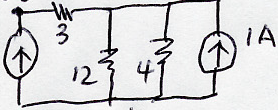 3
12
4
1A